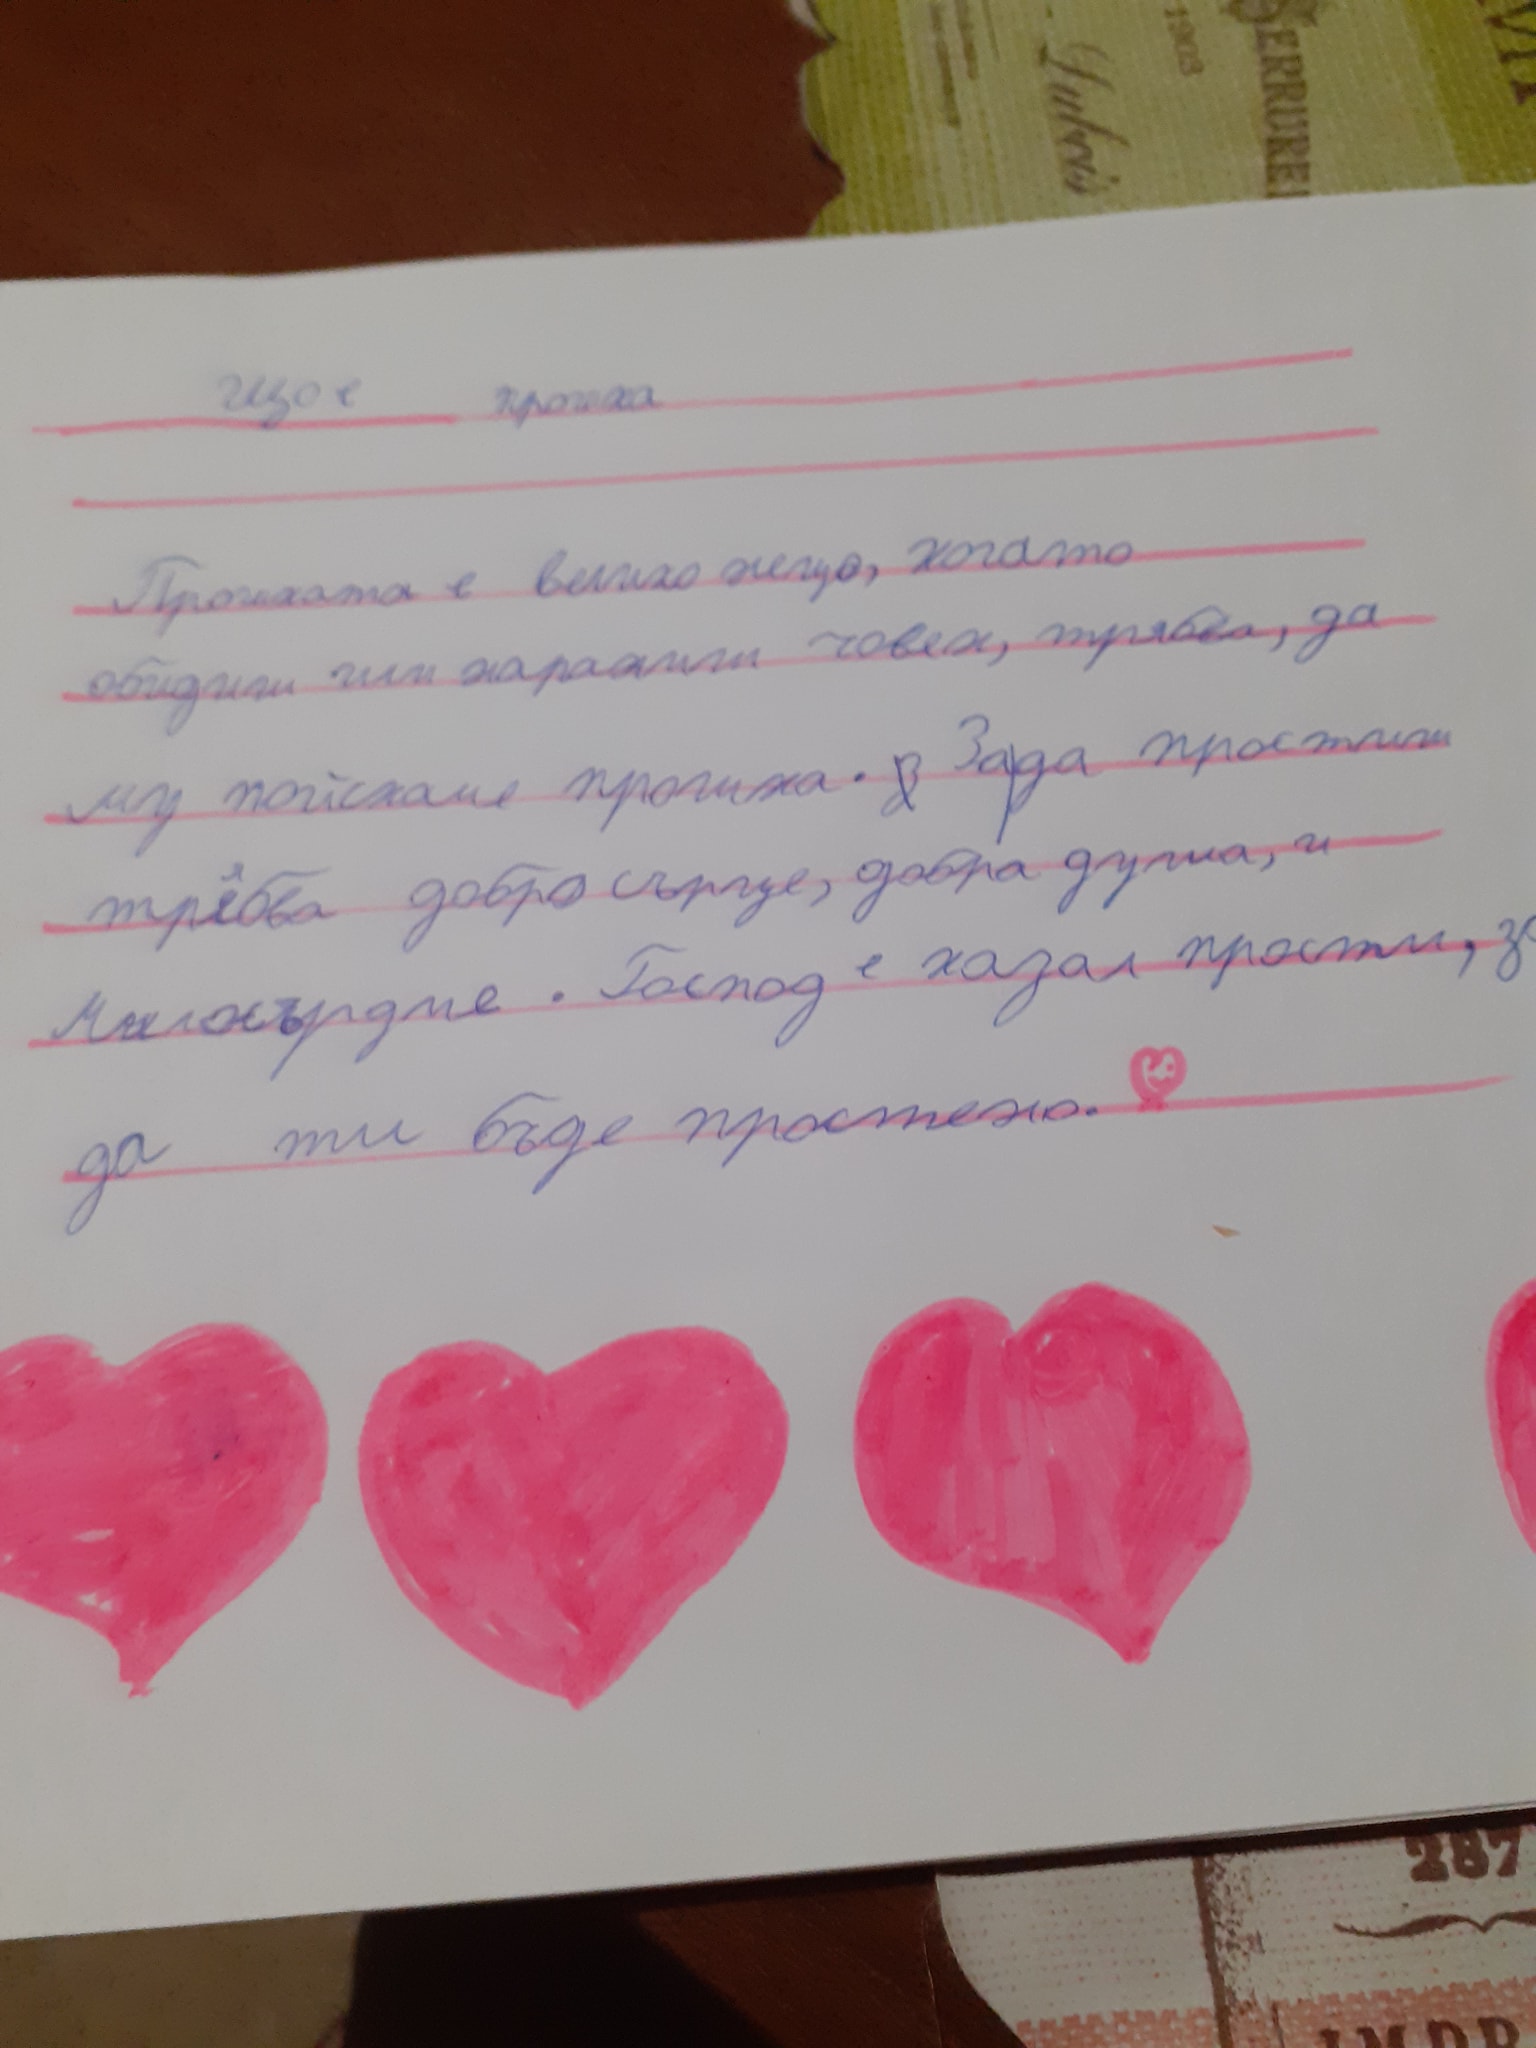 1903
SERRURE
що е прошка
Прошката е велико нещо, когато
обидиш или нараниш човек, трябва, да
му поискаш прошка. За да простиш
трябва добро сърце, добра душа, и
Милосърдие. Господ е казал прости, за
да ти бъде простено.
287
IMPR